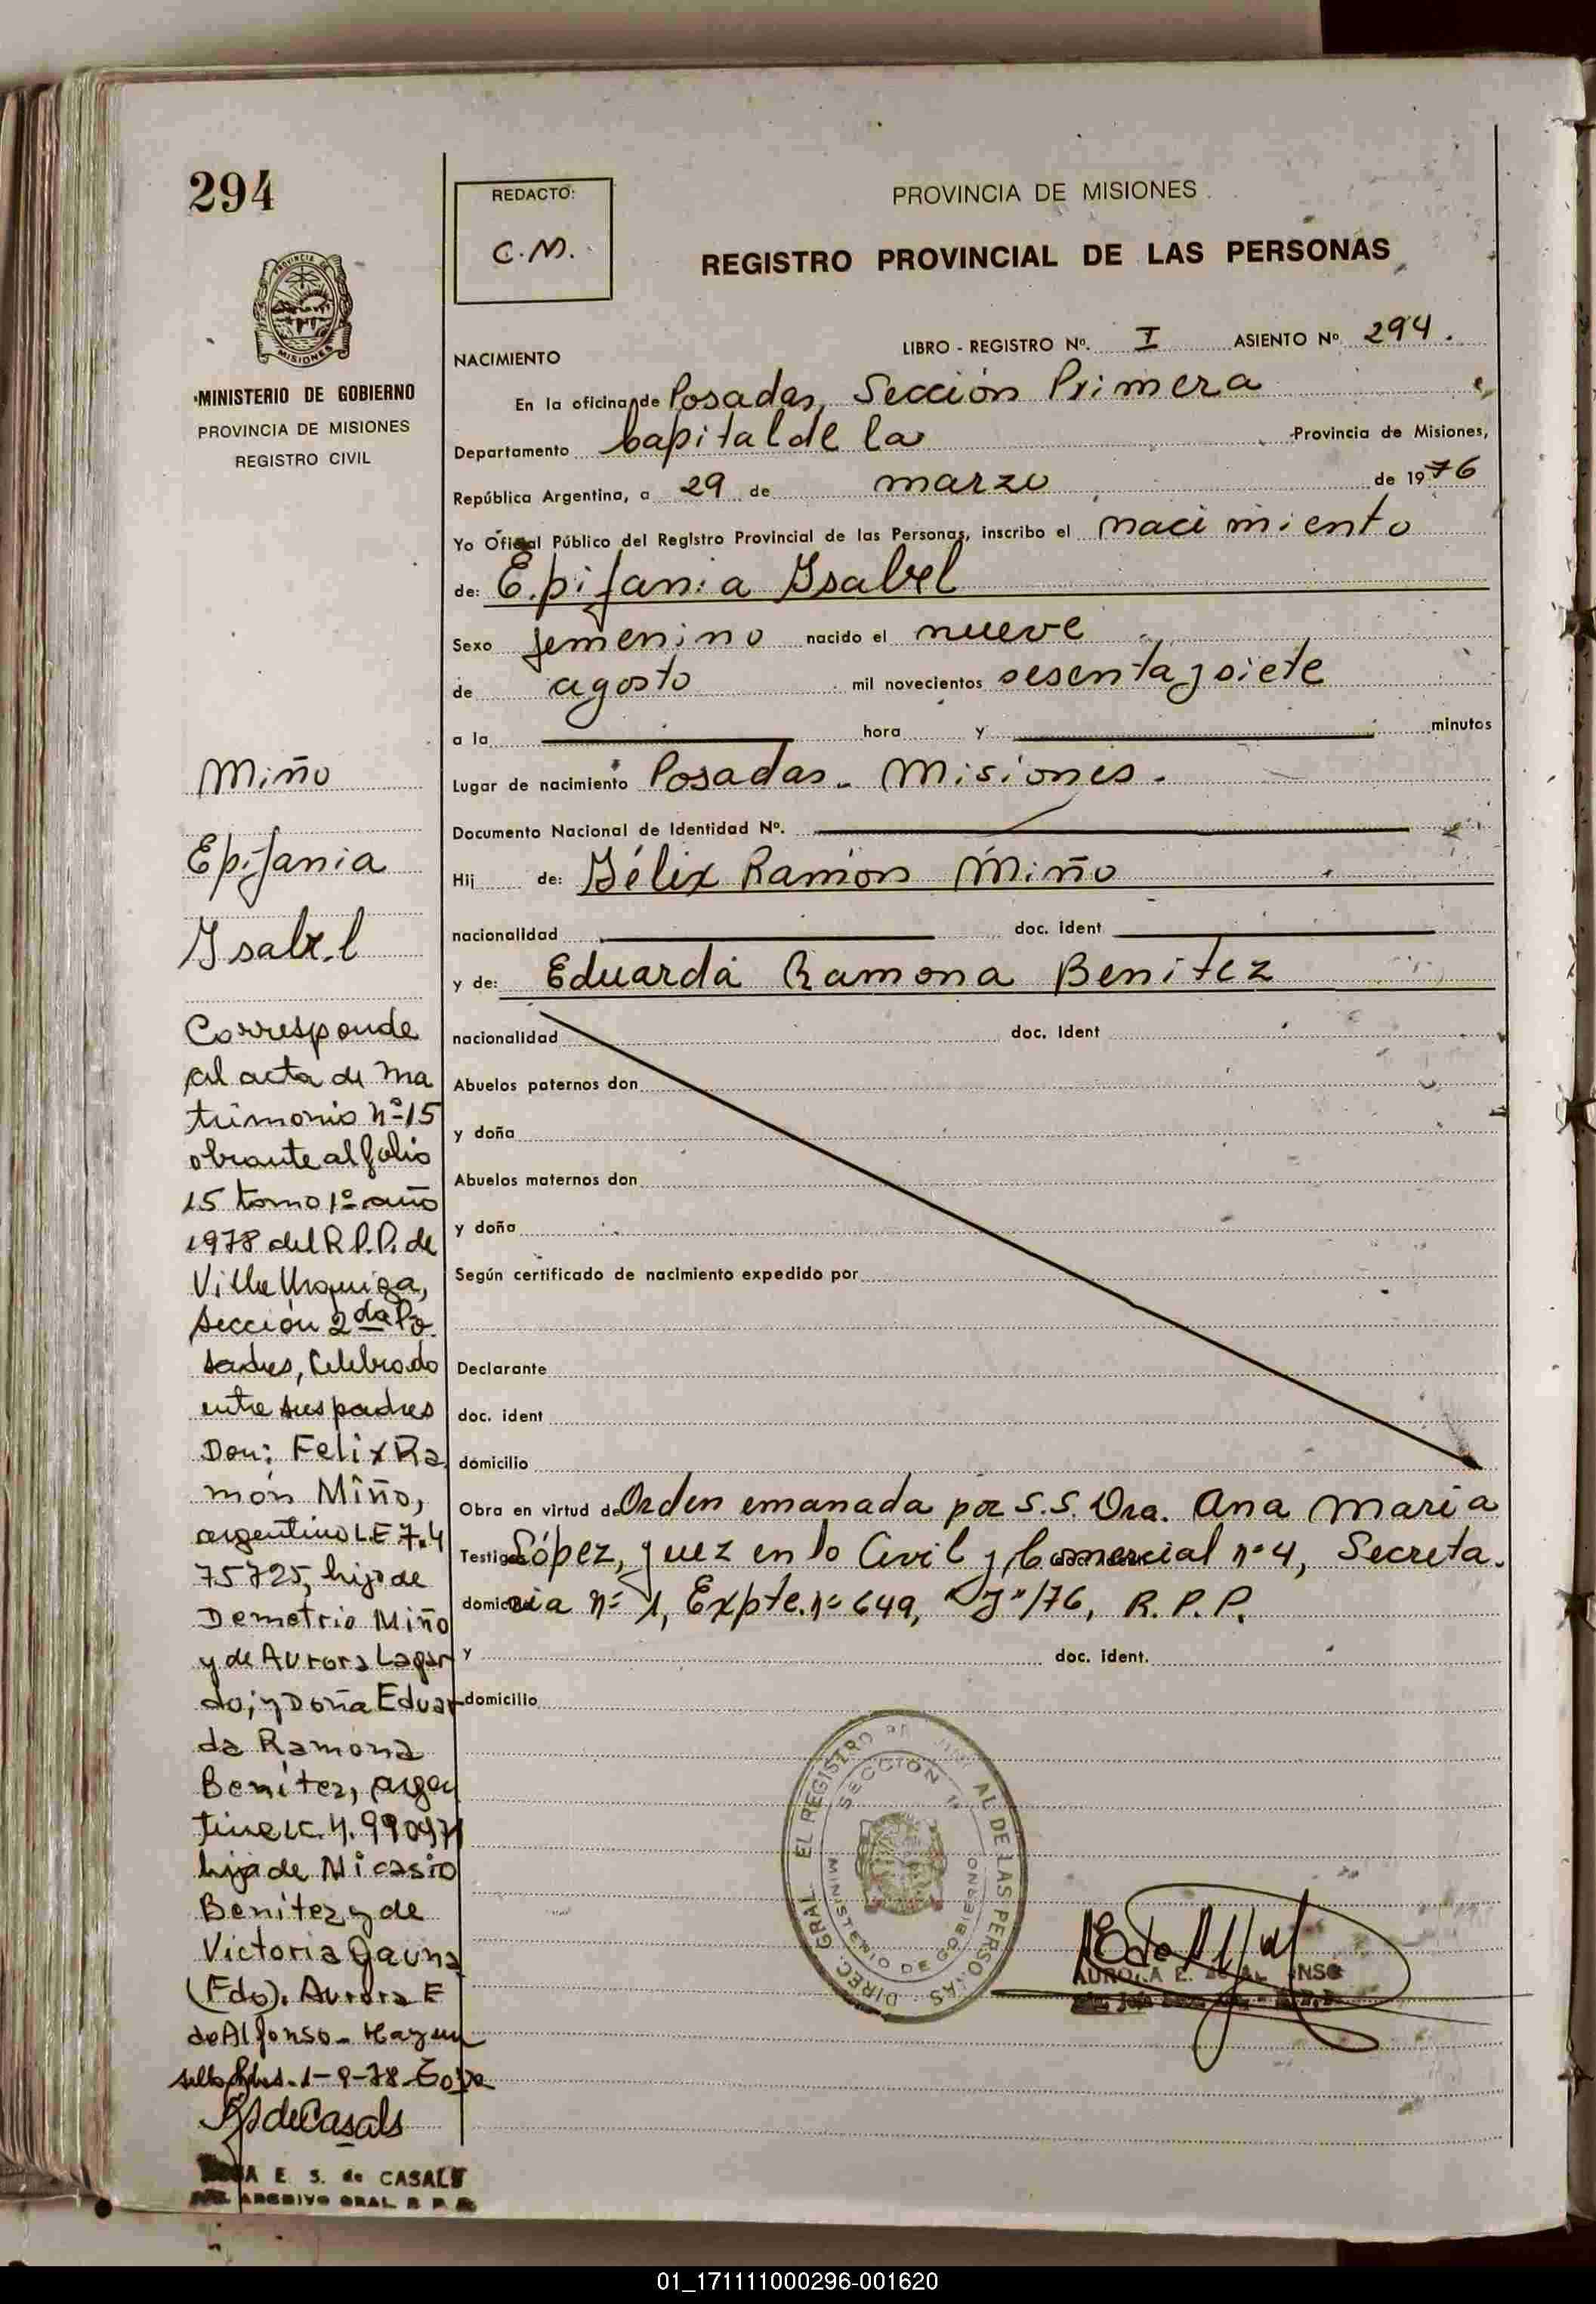 294
REDACTO:
C.M.
PROVINCIA DE MISIONES
REGISTRO PROVINCIAL DE LAS PERSONAS
MISIONES
MINISTERIO DE GOBIERNO
PROVINCIA DE MISIONES
REGISTRO CIVIL
LIBRO - REGISTRO Nº. I ASIENTO Nº 294.
NACIMIENTO
En la oficina de Posadas, Sección Primera
Departamento Capital de la Provincia de Misiones,
República Argentina, a 29 de marzo de 1976
Yo Oficial Público del Registro Provincial de las Personas, inscribo el nacimiento
de: Epifania Ysabel
Sexo femenino nacido el nueve
de agosto mil novecientos sesenta y siete
a la hora y minutos
Lugar de nacimiento Posadas - Misiones.
Documento Nacional de Identidad Nº.
Hij de: Félix Ramón Miño
nacionalidad doc. ident
y de: Eduarda Ramona Benitez
nacionalidad doc. ident
Abuelos paternos don
y doña
Abuelos maternos don
y doña
Según certificado de nacimiento expedido por
Declarante
doc. ident
domicilio
Obra en virtud de Orden emanada por S.S. Dra. Ana Maria
Testigos López, Juez en lo Civil y Comercial nº 4, Secreta-
domicilio ria nº 1, Expte. nº 649, "J"/76, R.P.P.
y doc. ident.
domicilio
Miño
Epifania
Ysabel
Corresponde
al acta de ma
trimonio nº 15
obrante al folio
15 tomo 1º año
1978 del R.P.P. de
Villa Urquiza,
sección 2da Po
sadas, Celebrado
entre sus padres
Don: Felix Ra
món Miño,
argentino L.E 7.4
75725, hijo de
Demetrio Miño
y de Aurora Lagar
do; y Doña Eduar
da Ramona
Benítez, argen
tina LC. 4.990471
hija de Nicasio
Benítez y de
Victoria Gauna
(Fdo). Aurora E
de Alfonso - Hay un
sello Pdas. 1-9-78
de Casals
E. S. de CASALS
ARCHIVO GRAL R P P
DIREC. GRAL. EL REGISTRO AL DE LAS PERSONAS
SECCION
MINISTERIO DE GOBIERNO
AURORA E. DE ALFONSO
01_171111000296-001620